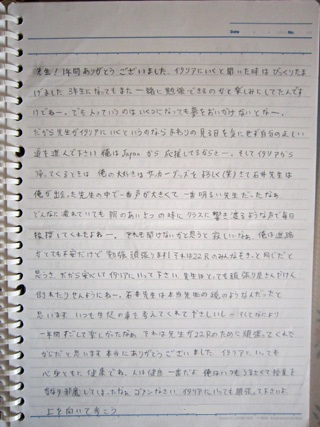 Date
先生！1年間ありがとうございました。イタリアにいくと聞いた時はびっくりたま
げました 3年生になってもまた一緒に勉強できるのかと楽しみにしてたんです
けどねー。でも人っていうのはいくつになっても夢をおいかけないとなー。
だから先生がイタリアにいくというのなら まわりの見る目を気にせず自分の正しい
道を選んで下さい 俺はJapanから応援してるからさー。そしてイタリアから
帰ってくるときは、俺の大好きなサッカーグッズをよろしく(笑)さて石井先生は
俺が出会った先生の中で一番声が大きくて一番明るい先生だったなぁ
どんなに疲れていても 朝のあいさつの時にクラスに響き渡るような声で毎日
挨拶してくれたよねー。それを聞けないかと思うと寂しいなぁ。俺は進路
がとても不安だけど勉強頑張ります！それは22Rのみんなもきっと同じだと
思うさ だから安心してイタリアにいって下さい 先生はとっても頑張り屋さんだけど
倒れたりせんようにねー。石井先生は本当先生の鏡のような人だったと
思います いつも生徒の事を考えてくれてやさしいし
一年間すごして楽しかったなぁ それは先生が22Rのために頑張ってくれた
からだと思います 本当にありがとうございました イタリアにいっても
心身ともに健康でね。人は健康一番だよ 俺はいつも
邪魔してしまったなぁ ゴメンなさい イタリアにいっても頑張って下さいよ
上を向いて歩こう